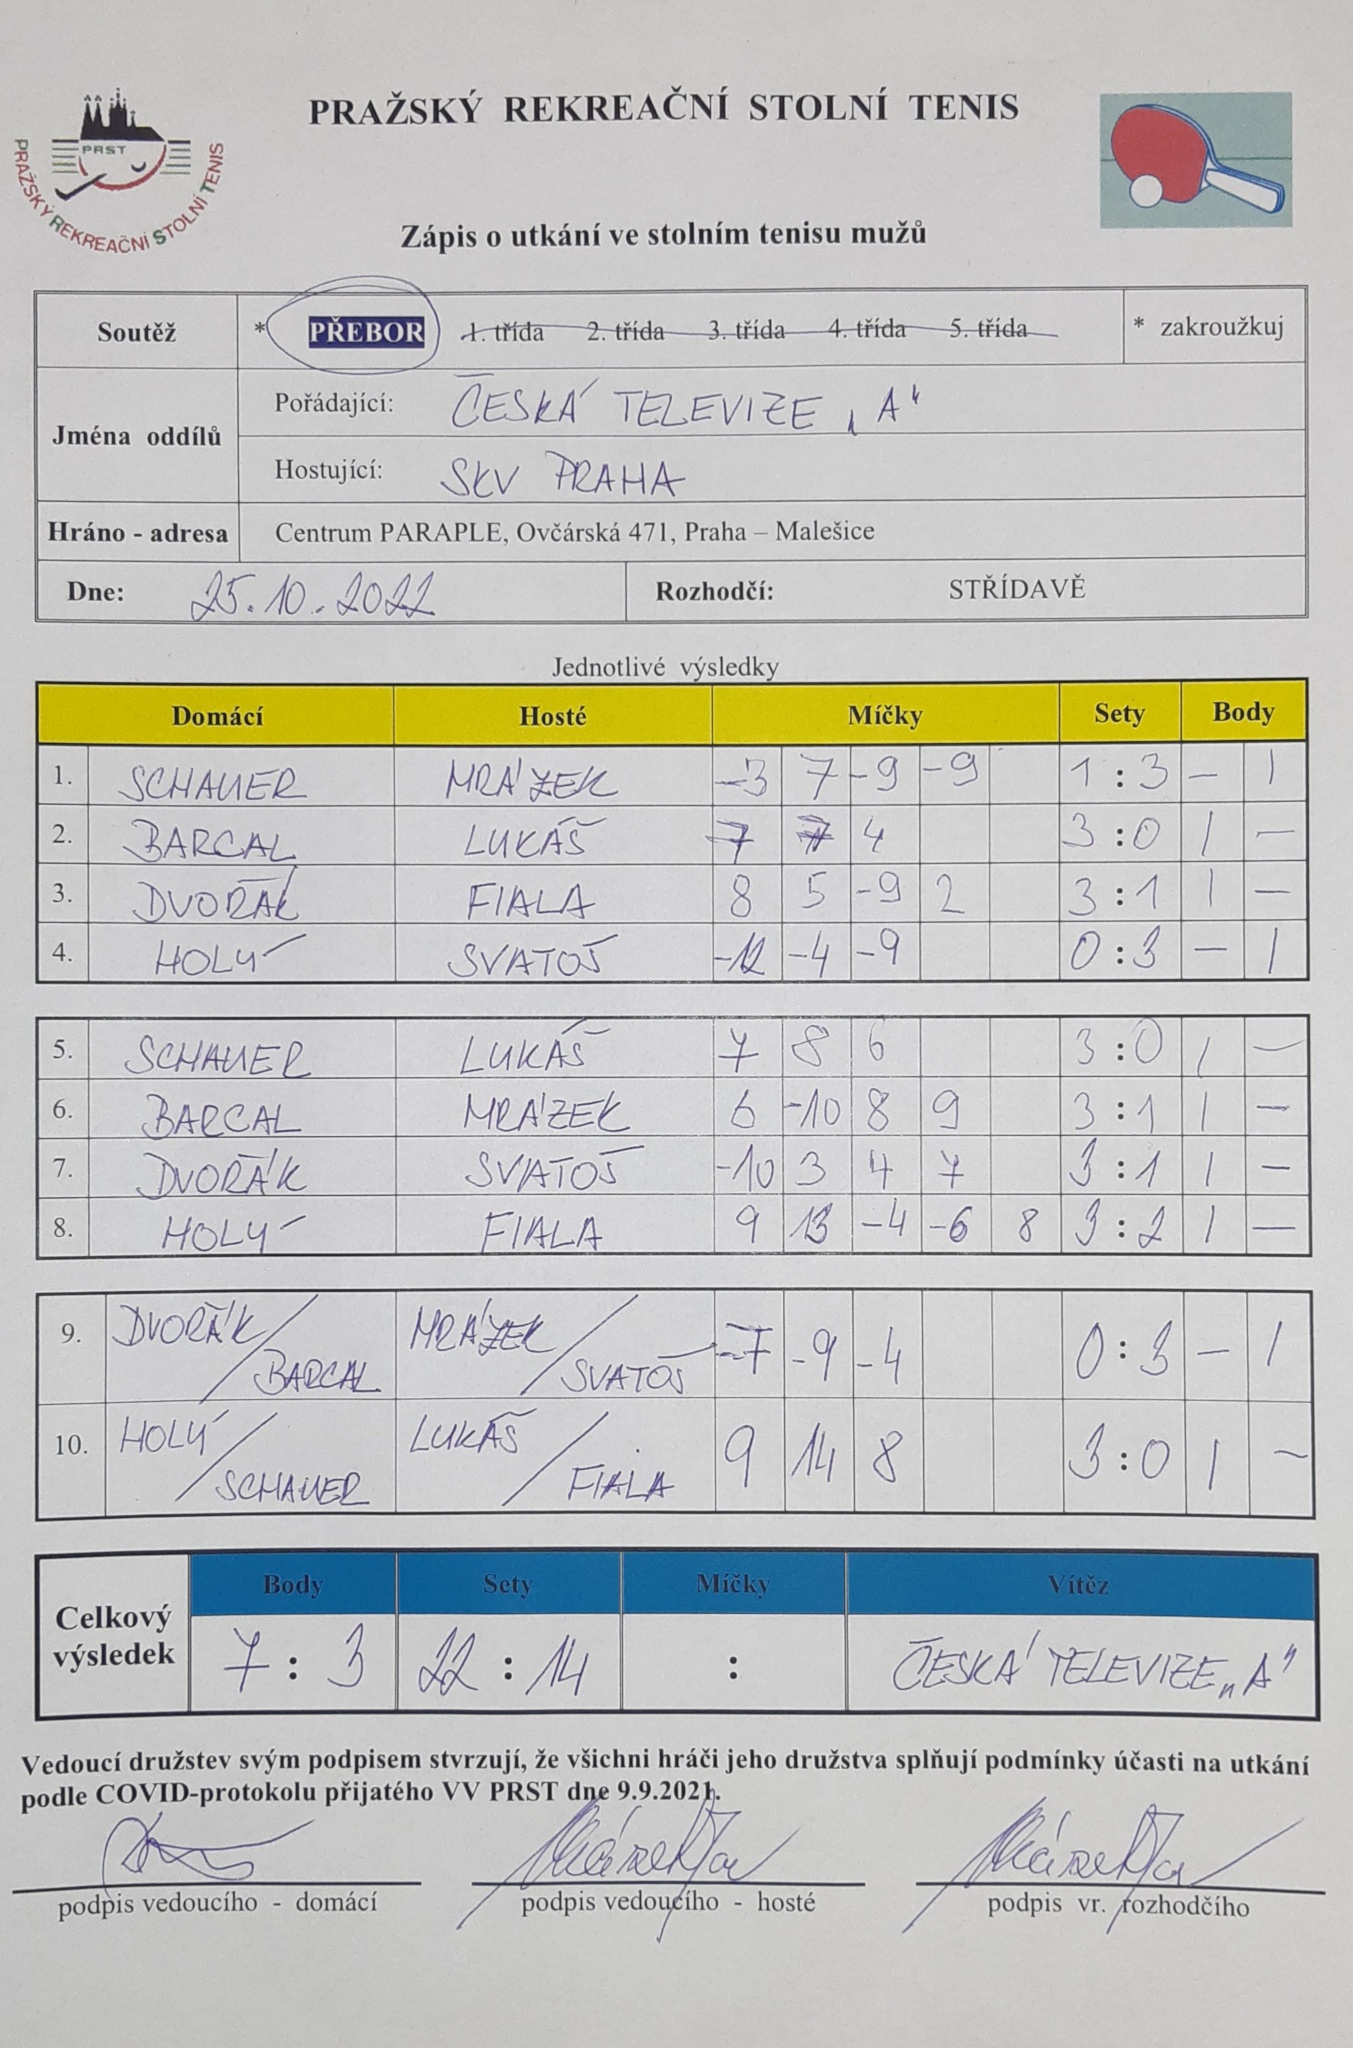 PRAŽSKÝ REKREAČNÍ STOLNÍ TENIS
PRST
PRAŽSKÝ REKREAČNÍ STOLNÍ TENIS
Zápis o utkání ve stolním tenisu mužů
Soutěž * PŘEBOR 1. třída 2. třída 3. třída 4. třída 5. třída * zakroužkuj
Jména oddílů
Pořádající: ČESKÁ TELEVIZE „A"
Hostující: SKV PRAHA
Hráno - adresa Centrum PARAPLE, Ovčárská 471, Praha – Malešice
Dne: 25.10.2022 Rozhodčí: STŘÍDAVĚ
Jednotlivé výsledky
Domácí Hosté Míčky Sety Body
1. SCHAUER MRÁZEK -3 7 -9 -9 1 : 3 – 1
2. BARCAL LUKÁŠ 7 7 4 3 : 0 1 –
3. DVOŘÁK FIALA 8 5 -9 2 3 : 1 1 –
4. HOLÝ SVATOŠ -12 -4 -9 0 : 3 – 1
5. SCHAUER LUKÁŠ 7 8 6 3 : 0 1 –
6. BARCAL MRÁZEK 6 -10 8 9 3 : 1 1 –
7. DVOŘÁK SVATOŠ -10 3 4 7 3 : 1 1 –
8. HOLÝ FIALA 9 13 -4 -6 8 3 : 2 1 –
9. DVOŘÁK / BARCAL MRÁZEK / SVATOŠ -7 -9 -4 0 : 3 – 1
10. HOLÝ / SCHAUER LUKÁŠ / FIALA 9 14 8 3 : 0 1 –
Celkový výsledek
Body Sety Míčky Vítěz
7 : 3 22 : 14 : ČESKÁ TELEVIZE „A"
Vedoucí družstev svým podpisem stvrzují, že všichni hráči jeho družstva splňují podmínky účasti na utkání
podle COVID-protokolu přijatého VV PRST dne 9.9.2021.
podpis vedoucího - domácí podpis vedoucího - hosté podpis vr. rozhodčího